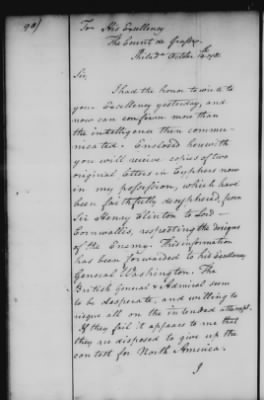 To His Excellency
The Count de Grasse.
Philada October 14th 1781
Sir,
I had the honor to write to
your Excellency yesterday, and
now can confirm more than
the intelligence then commu-
nicated. Enclosed herewith
you will receive copies of two
original letters in Cyphers now
in my possession, which have
been faithfully decyphered, from
Sir Henry Clinton to Lord
Cornwallis, respecting the designs
of the Enemy. This information
has been forwarded to his Excellency
General Washington. The
British General & Admiral seem
to be desperate, and willing to
risque all on the intended attempt.
If they fail it appears to me that
they are disposed to give up the
contest for North America.
I